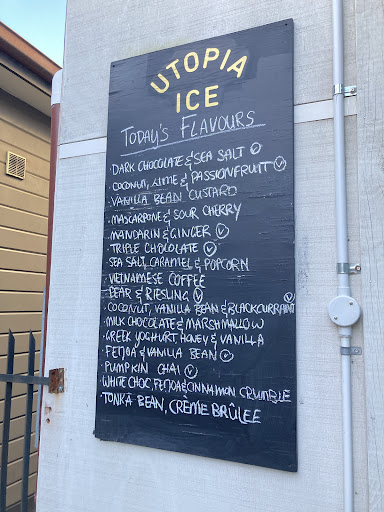 UTOPIA
ICE
TODAY'S FLAVOURS
· DARK CHOCOLATE & SEA SALT Ⓥ
· COCONUT, LIME & PASSIONFRUIT Ⓥ
· VANILLA BEAN CUSTARD
· MASCARPONE & SOUR CHERRY
· MANDARIN & GINGER Ⓥ
· TRIPLE CHOCOLATE Ⓥ
· SEA SALT CARAMEL & POPCORN
· VIETNAMESE COFFEE
· PEAR & RIESLING Ⓥ
· COCONUT, VANILLA BEAN & BLACKCURRANT Ⓥ
· MILK CHOCOLATE & MARSHMALLOW
· GREEK YOGHURT, HONEY & VANILLA
· FEIJOA & VANILLA BEAN Ⓥ
· PUMPKIN CHAI Ⓥ
· WHITE CHOC, FEIJOA & CINNAMON CRUMBLE
· TONKA BEAN, CRÈME BRÛLÉE